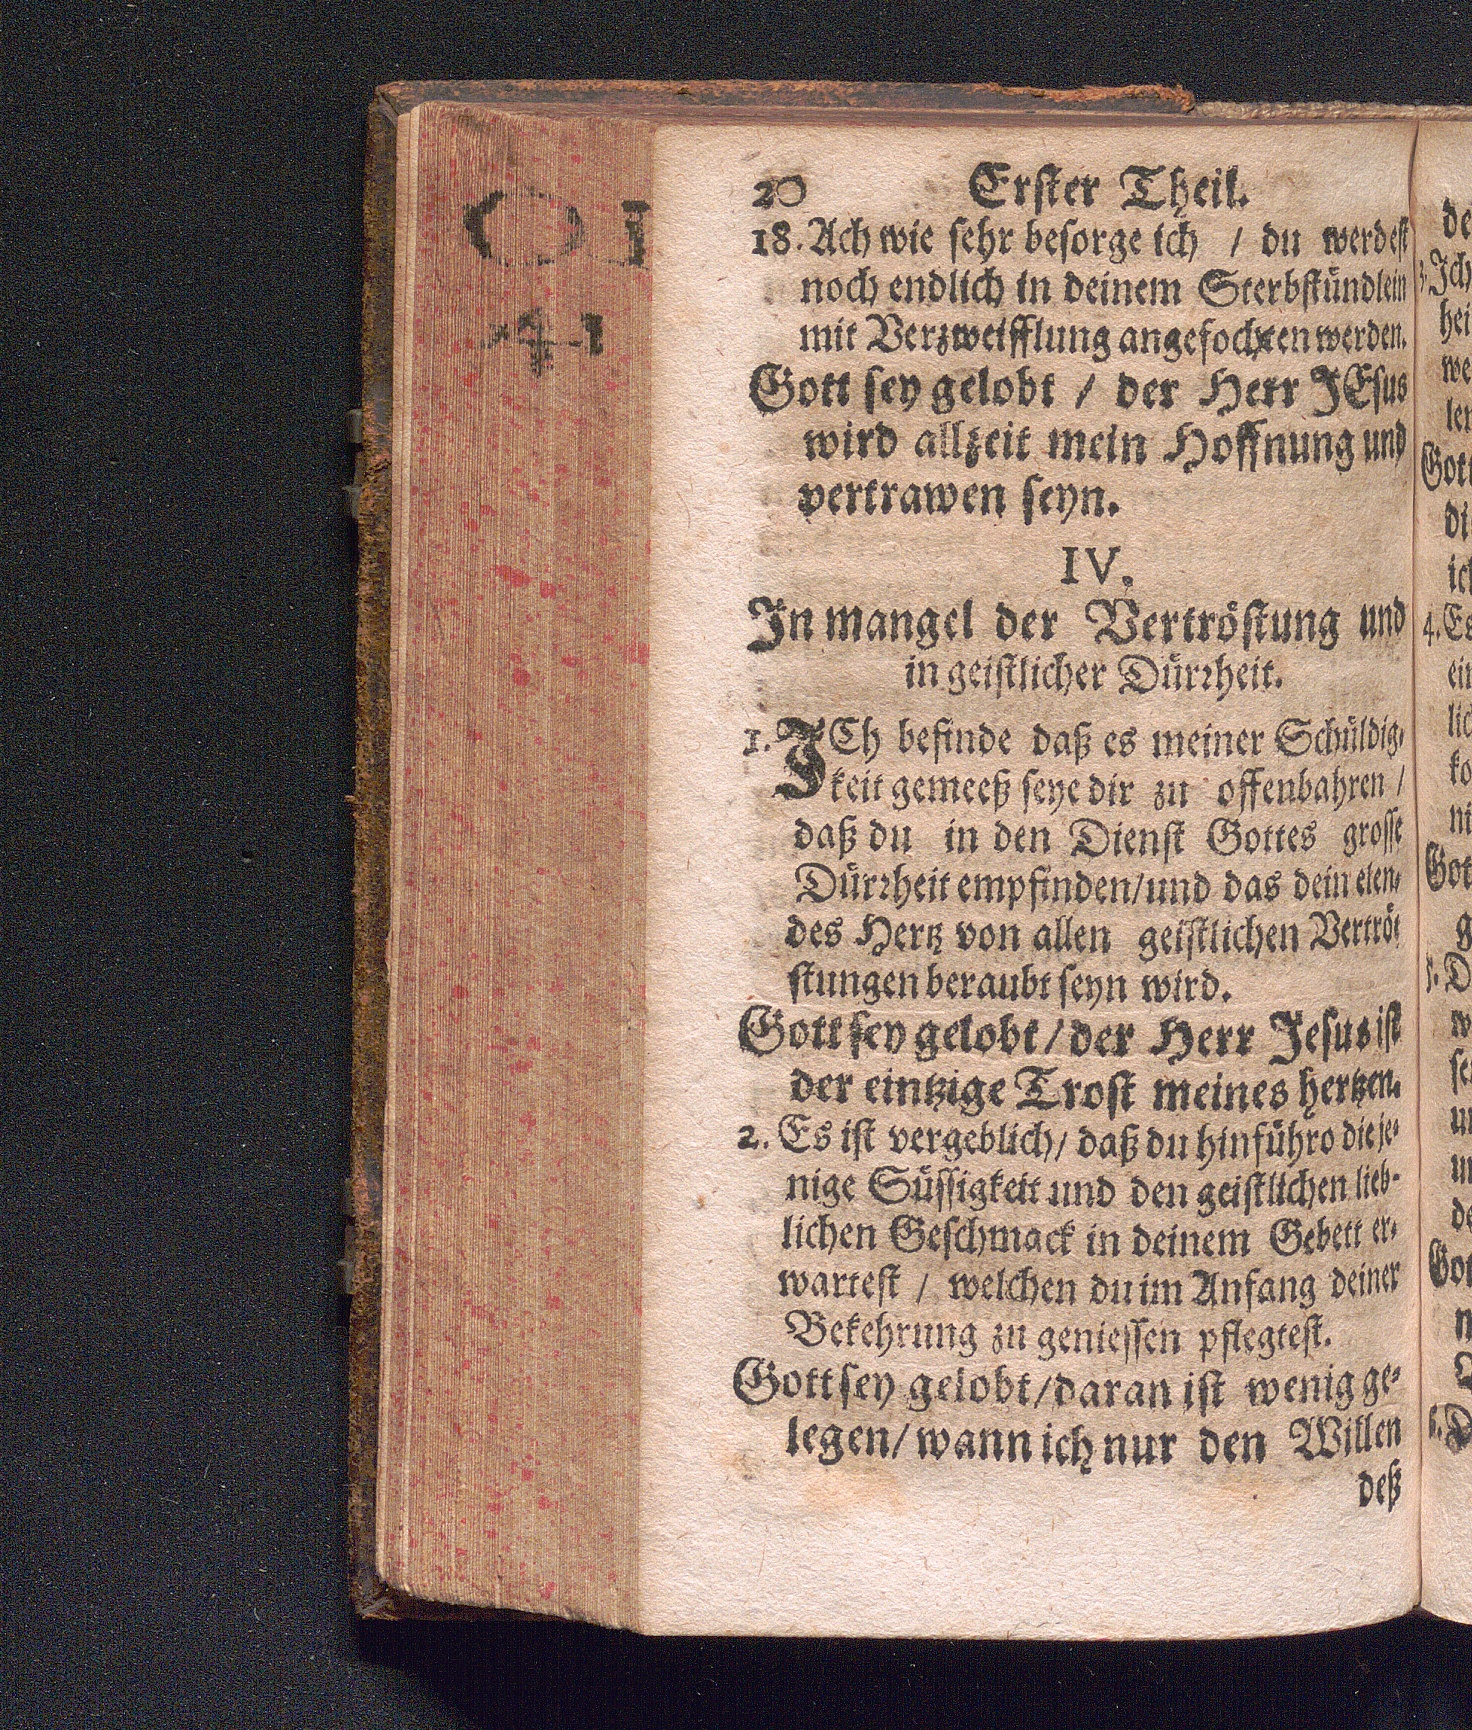 20 Erster Theil.
18. Ach wie sehr besorge ich / du werdest
noch endlich in deinem Sterbstündlein
mit Verzweifflung angefochten werden.
Gott sey gelobt / der Herr JEsus
wird allzeit mein Hoffnung und
vertrawen seyn.
IV.
In mangel der Vertröstung und
in geistlicher Dürrheit.
1. ICh befinde daß es meiner Schuldig-
keit gemeeß seye dir zu offenbahren /
daß du in den Dienst Gottes grosse
Dürrheit empfinden/und das dein elen-
des Hertz von allen geistlichen Vertrö-
stungen beraubt seyn wird.
Gott sey gelobt/der Herr Jesus ist
der eintzige Trost meines hertzen.
2. Es ist vergeblich/ daß du hinführo die je-
nige Süssigkeit und den geistlichen lieb-
lichen Geschmack in deinem Gebett er-
wartest / welchen du im Anfang deiner
Bekehrung zu geniessen pflegtest.
Gott sey gelobt/daran ist wenig ge-
legen/wann ich nur den Willen
deß